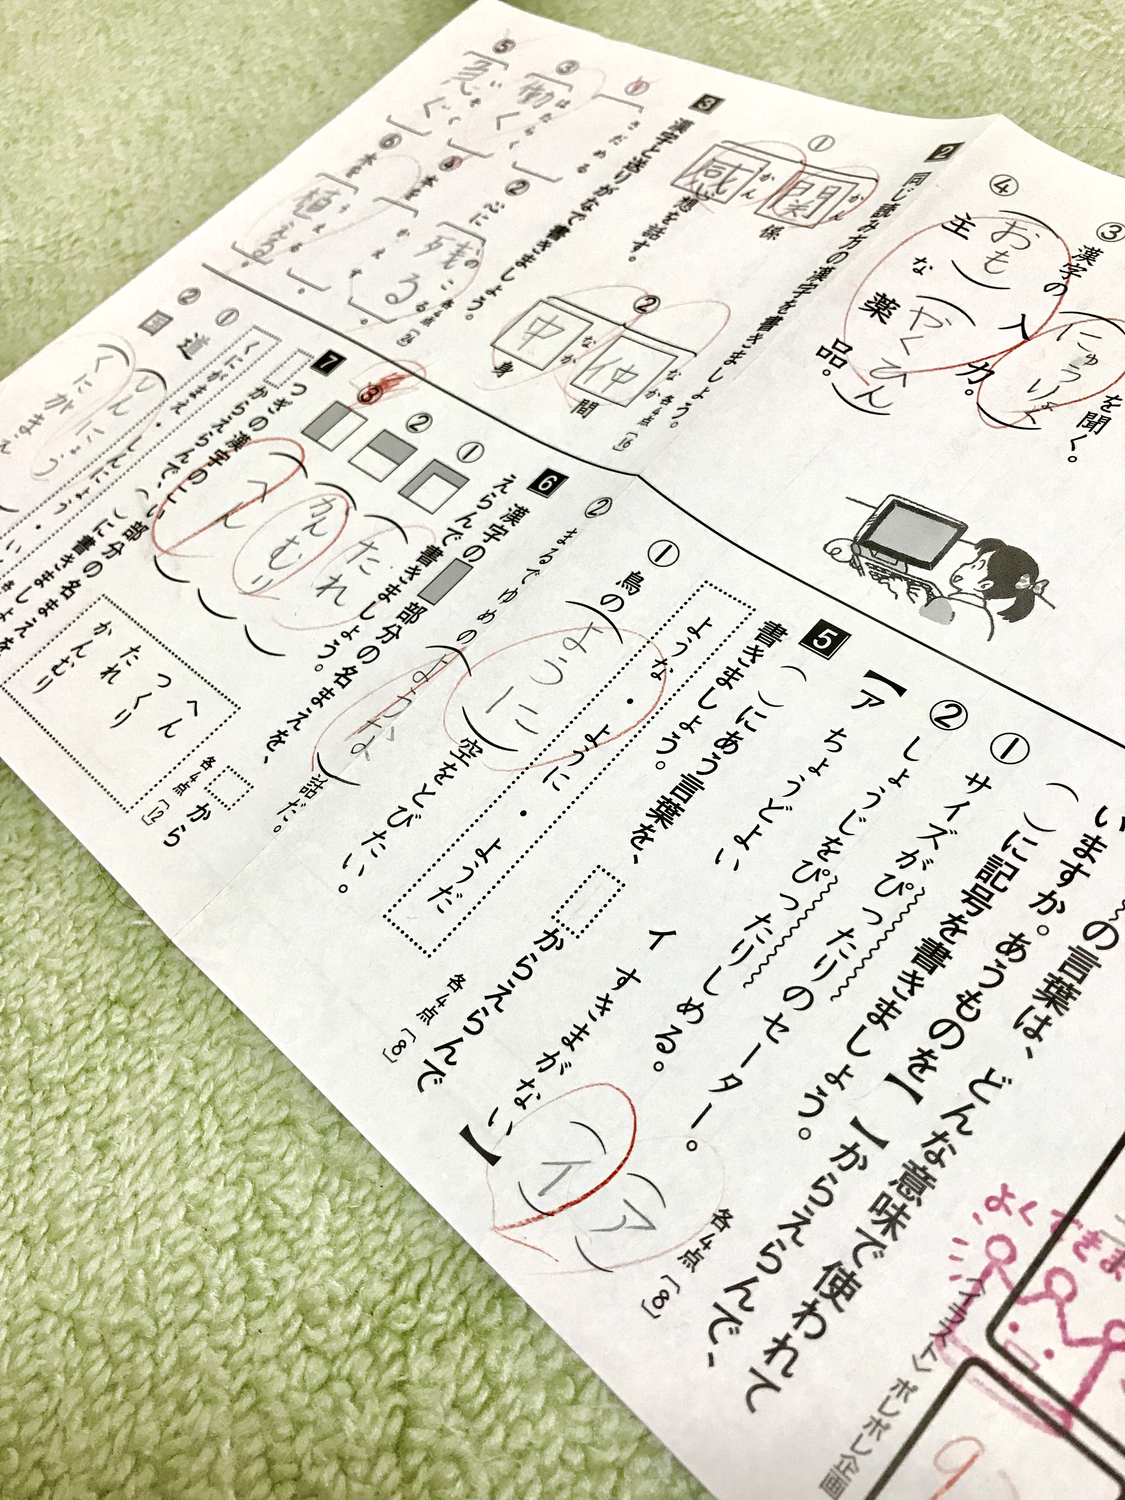 いますか。
の言葉は、どんな意味で使われて
( )に記号を書きましょう。
あうものを【 】からえらんで、
各4点〔8〕
① サイズがぴったりのセーター。
(ア)
② しょうじをぴったりしめる。
(イ)
【ア ちょうどよい イ すきまがない】
5 ( )にあう言葉を、からえらんで
書きましょう。
各4点〔8〕
ような・ように・ようだ
① 鳥の(ように)空をとびたい。
② まるでゆめの(ような)話だ。
③ 漢字の入力。
(にゅうりょ
を聞く。
④ 主な薬品。
(おも)(やくひん)
2 同じ読み方の漢字を書きましょう。
各4点〔16〕
① かん 関係
かん 感想を話す。
② なか 仲間
なか 中身
3 漢字と送りがなで書きましょう。
各4点
① さだめる
② 心に のこる 残る
③ はたらく 働く
④ 木をかえす
⑤ いそぐ 急ぐ
⑥ 木をうえる 植える
6 漢字の部分の名まえを、から
えらんで書きましょう。
各4点〔12〕
① (たれ)
② (かんむり)
③ (へん)
へん
つくり
たれ
かんむり
7 つぎの漢字の部分の名まえを
からえらんで、( )に書きましょう
くにがまえ・しんにょう・
① 道 (しんにょう
② 国 (くにがまえ
よくできま
〈イラスト〉 ポレポレ企画
9